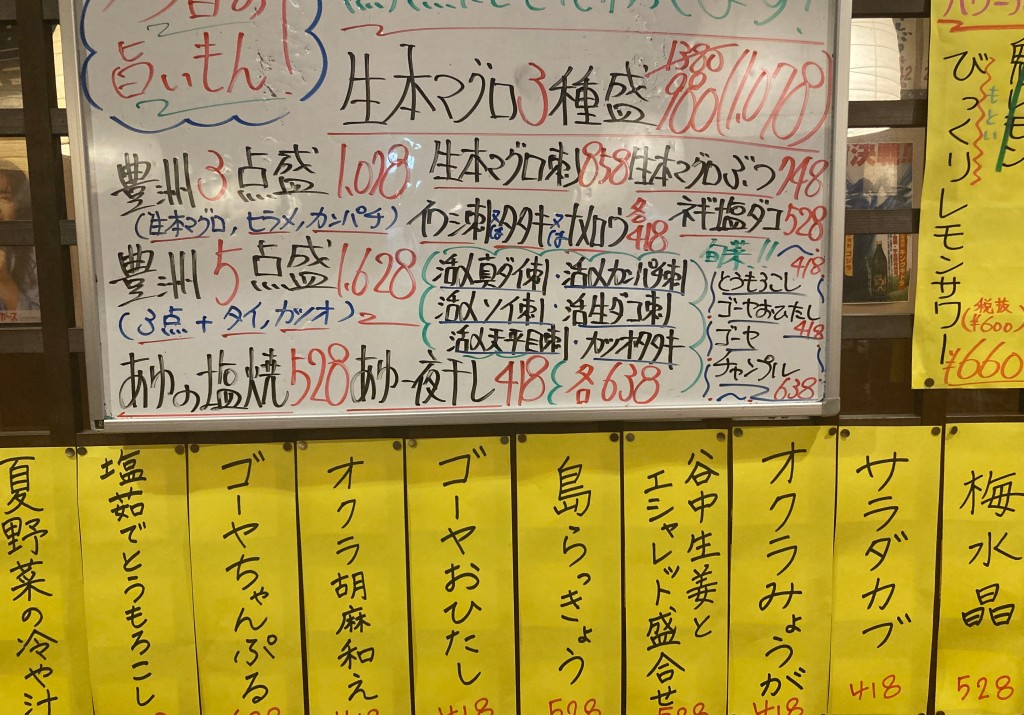 旨いもん!
生本マグロ3種盛 1380 980 (1.078)
豊洲3点盛 1.078
(生本マグロ,ヒラメ,カンパチ)
豊洲5点盛 1.628
(3点+タイ,カツオ)
あゆの塩焼 528
あゆ一夜干し 418
生本マグロ刺 858
生本マグロぶつ 748
イワシ刺又はタタキ又はナメロウ 各418
ネギ塩ダコ 528
活〆真ダイ刺・活〆カンパチ刺
活〆ソイ刺・活生ダコ刺
活〆天平目刺・カツオタタキ
各638
旬菜!!
とうもろこし 418
ゴーヤおひたし 418
ゴーヤ
チャンプル
638
びっくりレモンサワー
税抜
(¥600)
¥660
梅水晶 528
サラダカブ 418
オクラみょうが 418
谷中生姜と
エシャレット盛合せ
528
島らっきょう 528
ゴーヤおひたし 418
オクラ胡麻和え 418
ゴーヤちゃんぷる
塩茹でとうもろこし
夏野菜の冷や汁